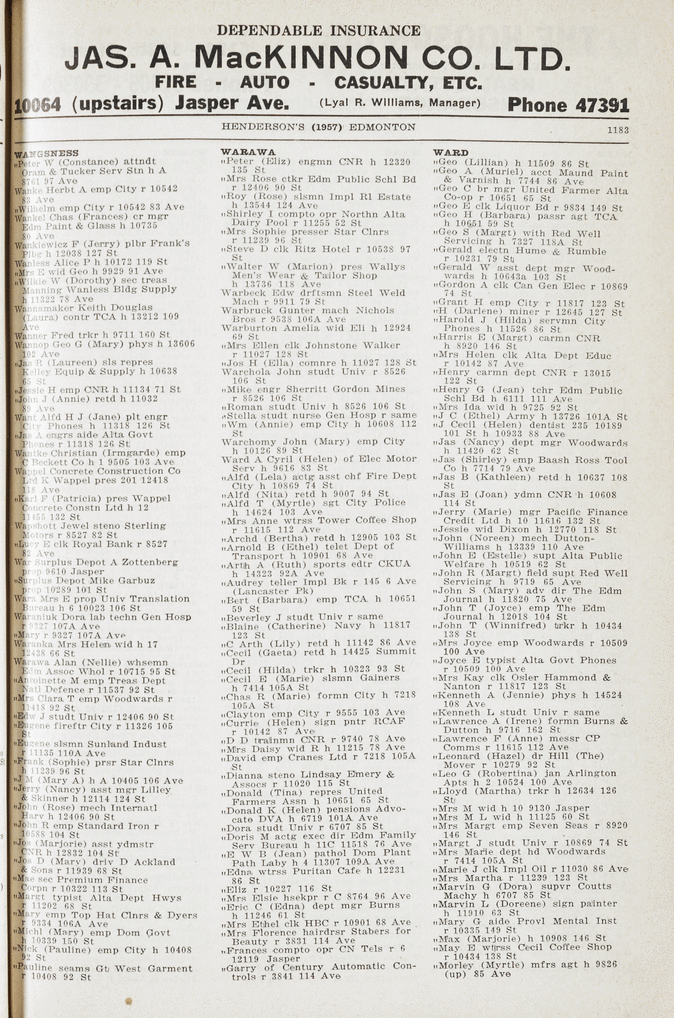 DEPENDABLE INSURANCE
JAS. A. MacKINNON CO. LTD.
FIRE - AUTO - CASUALTY, ETC.
10064 (upstairs) Jasper Ave. (Lyal R. Williams, Manager) Phone 47391
HENDERSON'S (1957) EDMONTON
1183
WANGSNESS
"Peter W (Constance) attndt
Oram & Tucker Serv Stn h A
8761 97 Ave
Wanke Herbt A emp City r 10542
83 Ave
"Wilhelm emp City r 10542 83 Ave
Wankel Chas (Frances) cr mgr
Edm Paint & Glass h 10735
80 Ave
Wankiewicz F (Jerry) plbr Frank's
Plbg h 12038 127 St
Wanless Alice P h 10172 119 St
"Mrs E wid Geo h 9929 91 Ave
"Wilkie W (Dorothy) sec treas
Manning Wanless Bldg Supply
h 11322 78 Ave
Wannamaker Keith Douglas
(Laura) contr TCA h 13212 109
Ave
Wanner Fred trkr h 9711 160 St
Wannop Geo G (Mary) phys h 13606
102 Ave
"Jas R (Laureen) sls repres
Kelley Equip & Supply h 10638
65 St
"Jessie H emp CNR h 11134 71 St
"John J (Annie) retd h 11032
89 Ave
Want Alfd H J (Jane) plt engr
City Phones h 11318 126 St
"Jas A engrs aide Alta Govt
Phones r 11318 126 St
Wantke Christian (Irmgarde) emp
C Beckett Co h 1 9505 103 Ave
Wappel Concrete Construction Co
Ltd K Wappel pres 201 12418
118 Ave
"Karl F (Patricia) pres Wappel
Concrete Constn Ltd h 12
11455 132 St
Wapshott Jewel steno Sterling
Motors r 8527 82 St
"Lucy E clk Royal Bank r 8527
82 Ave
War Surplus Depot A Zottenberg
prop 9610 Jasper
"Surplus Depot Mike Garbuz
prop 10289 101 St
Wara Mrs E prop Univ Translation
Bureau h 6 10023 106 St
Waraniuk Dora lab techn Gen Hosp
r 9327 107A Ave
"Mary r 9327 107A Ave
Waranka Mrs Helen wid h 17
12428 66 St
Warawa Alan (Nellie) whsemn
Edm Assoc Whol r 10715 95 St
"Antoinette M emp Treas Dept
Natl Defence r 11537 92 St
"Mrs Clara T emp Woodwards r
11418 92 St
"Edw J studt Univ r 12406 90 St
"Eugene fireftr City r 11326 105
St
"Eugene slsmn Sunland Indust
r 11135 110A Ave
"Frank (Sophie) prsr Star Clnrs
h 11239 96 St
"J M (Mary A) h A 10405 106 Ave
"Jerry (Nancy) asst mgr Lilley
& Skinner h 12114 124 St
"John (Rose) mech Internatl
Harv h 12406 90 St
"John R emp Standard Iron r
10588 104 St
"Jos (Marjorie) asst ydmstr
CNR h 12832 104 St
"Jos D (Mary) driv D Ackland
& Sons r 11939 68 St
"Mae sec Premium Finance
Corpn r 10322 113 St
"Margt typist Alta Dept Hwys
r 11202 68 St
"Mary emp Top Hat Clnrs & Dyers
r 9334 106A Ave
"Michl (Mary) emp Dom Govt
h 10339 150 St
"Nick (Pauline) emp City h 10408
92 St
"Pauline seams Gt West Garment
r 10408 92 St
WARAWA
"Peter (Eliz) engmn CNR h 12320
135 St
"Mrs Rose ctkr Edm Public Schl Bd
r 12406 90 St
"Roy (Rose) slsmn Impl Rl Estate
h 13544 124 Ave
"Shirley I compto opr Northn Alta
Dairy Pool r 11255 52 St
"Mrs Sophie presser Star Clnrs
r 11239 96 St
"Steve D clk Ritz Hotel r 10538 97
St
"Walter W (Marion) pres Wallys
Men's Wear & Tailor Shop
h 13736 118 Ave
Warbeck Edw drftsmn Steel Weld
Mach r 9911 79 St
Warbruck Gunter mach Nichols
Bros r 9538 106A Ave
Warburton Amelia wid Eli h 12924
69 St
"Mrs Ellen clk Johnstone Walker
r 11027 128 St
"Jos H (Ella) comnre h 11027 128 St
Warchola John studt Univ r 8526
106 St
"Mike engr Sherritt Gordon Mines
r 8526 106 St
"Roman studt Univ h 8526 106 St
"Stella studt nurse Gen Hosp r same
"Wm (Annie) emp City h 10608 112
St
Warchomy John (Mary) emp City
h 10126 89 St
Ward A Cyril (Helen) of Elec Motor
Serv h 9616 83 St
"Alfd (Lela) actg asst chf Fire Dept
City h 10869 74 St
"Alfd (Nita) retd h 9007 94 St
"Alfd T (Myrtle) sgt City Police
h 14624 103 Ave
"Mrs Anne wtrss Tower Coffee Shop
r 11615 112 Ave
"Archd (Bertha) retd h 12905 103 St
"Arnold B (Ethel) telet Dept of
Transport h 10901 68 Ave
"Arth A (Ruth) sports edtr CKUA
h 14323 92A Ave
"Audrey teller Impl Bk r 145 6 Ave
(Lancaster Pk)
"Bert (Barbara) emp TCA h 10651
59 St
"Beverley J studt Univ r same
"Blaine (Catherine) Navy h 11817
123 St
"C Arth (Lily) retd h 11142 86 Ave
"Cecil (Gaeta) retd h 14425 Summit
Dr
"Cecil (Hilda) trkr h 10323 93 St
"Cecil E (Marie) slsmn Gainers
h 7414 105A St
"Chas R (Marie) formn City h 7218
105A St
"Clayton emp City r 9555 103 Ave
"Currie (Helen) sign pntr RCAF
r 10142 87 Ave
"D D trainmn CNR r 9740 78 Ave
"Mrs Daisy wid R h 11215 78 Ave
"David emp Cranes Ltd r 7218 105A
St
"Dianna steno Lindsay Emery &
Assocs r 11020 115 St
"Donald (Tina) repres United
Farmers Assn h 10651 65 St
"Donald K (Helen) pensions Advo-
cate DVA h 6719 101A Ave
"Dora studt Univ r 6707 85 St
"Doris M actg exec dir Edm Family
Serv Bureau h 11C 11518 76 Ave
"E W B (Jean) pathol Dom Plant
Path Laby h 4 11307 109A Ave
"Edna wtrss Puritan Cafe h 12231
86 St
"Eliz r 10227 116 St
"Mrs Elsie hsekpr r C 8764 96 Ave
"Eric C (Edna) dept mgr Burns
h 11246 61 St
"Mrs Ethel clk HBC r 10901 68 Ave
"Mrs Florence hairdrsr Stabers for
Beauty r 3831 114 Ave
"Frances compto opr CN Tels r 6
12119 Jasper
"Garry of Century Automatic Con-
trols r 3841 114 Ave
WARD
"Geo (Lillian) h 11509 86 St
"Geo A (Muriel) acct Maund Paint
& Varnish h 7744 86 Ave
"Geo C br mgr United Farmer Alta
Co-op r 10651 65 St
"Geo E clk Liquor Bd r 9834 149 St
"Geo H (Barbara) passr agt TCA
h 10651 59 St
"Geo S (Margt) with Red Well
Servicing h 7327 118A St
"Gerald electn Hume & Rumble
r 10231 79 St
"Gerald W asst dept mgr Wood-
wards h 10643a 103 St
"Gordon A clk Can Gen Elec r 10869
74 St
"Grant H emp City r 11817 123 St
"H (Darlene) miner r 12645 127 St
"Harold J (Hilda) servmn City
Phones h 11526 86 St
"Harris E (Margt) carmn CNR
h 8920 146 St
"Mrs Helen clk Alta Dept Educ
r 10142 87 Ave
"Henry carmn dept CNR r 13015
122 St
"Henry G (Jean) tchr Edm Public
Schl Bd h 6111 111 Ave
"Mrs Ida wid h 9725 92 St
"J C (Ethel) Army h 13726 101A St
"J Cecil (Helen) dentist 235 10189
101 St h 10938 88 Ave
"Jas (Nancy) dept mgr Woodwards
h 11420 62 St
"Jas (Shirley) emp Baash Ross Tool
Co h 7714 79 Ave
"Jas B (Kathleen) retd h 10637 108
St
"Jas E (Joan) ydmn CNR h 10608
114 St
"Jerry (Marie) mgr Pacific Finance
Credit Ltd h 10 11616 132 St
"Jessie wid Dixon h 12770 118 St
"John (Noreen) mech Dutton-
Williams h 13339 110 Ave
"John E (Estelle) supt Alta Public
Welfare h 10519 62 St
"John R (Margt) field supt Red Well
Servicing h 9719 65 Ave
"John S (Mary) adv dir The Edm
Journal h 11820 75 Ave
"John T (Joyce) emp The Edm
Journal h 12018 104 St
"John T (Winnifred) trkr h 10434
138 St
"Mrs Joyce emp Woodwards r 10509
100 Ave
"Joyce E typist Alta Govt Phones
r 10509 100 Ave
"Mrs Kay clk Osler Hammond &
Nanton r 11817 123 St
"Kenneth A (Jennie) phys h 14524
108 Ave
"Kenneth L studt Univ r same
"Lawrence A (Irene) formn Burns &
Dutton h 9716 162 St
"Lawrence F (Anne) messr CP
Comms r 11615 112 Ave
"Leonard (Hazel) dr Hill (The)
Mover r 10279 92 St
"Leo G (Robertina) jan Arlington
Apts h 2 10524 100 Ave
"Lloyd (Martha) trkr h 12634 126
St
"Mrs M wid h 10 9130 Jasper
"Mrs M L wid h 11125 60 St
"Mrs Margt emp Seven Seas r 8920
146 St
"Margt J studt Univ r 10869 74 St
"Mrs Marie dept hd Woodwards
r 7414 105A St
"Marie J clk Impl Oil r 11030 86 Ave
"Mrs Martha r 11239 123 St
"Marvin G (Dora) supvr Coutts
Machy h 6707 85 St
"Marvin L (Doreene) sign painter
h 11910 63 St
"Mary G aide Provl Mental Inst
r 10335 149 St
"Max (Marjorie) h 10908 146 St
"May E wtrss Cecil Coffee Shop
r 10434 138 St
"Morley (Myrtle) mfrs agt h 9826
(up) 85 Ave